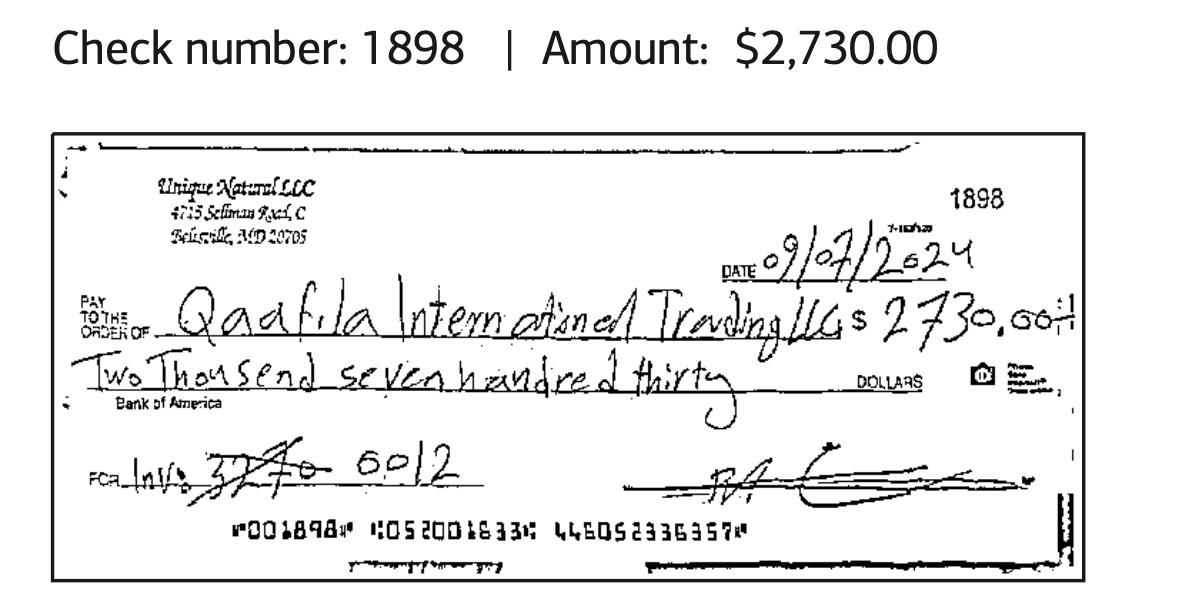 Check number: 1898 | Amount: $2,730.00
Unique Natural LLC
1898
4715 Sellman Road, C
Beltsville, MD 20705
DATE 09/07/2024
PAY TO THE ORDER OF Qaafila International Trading LLC $ 2730.00
Two Thousend seven handred thirty DOLLARS
Bank of America
FOR Inv: 6012